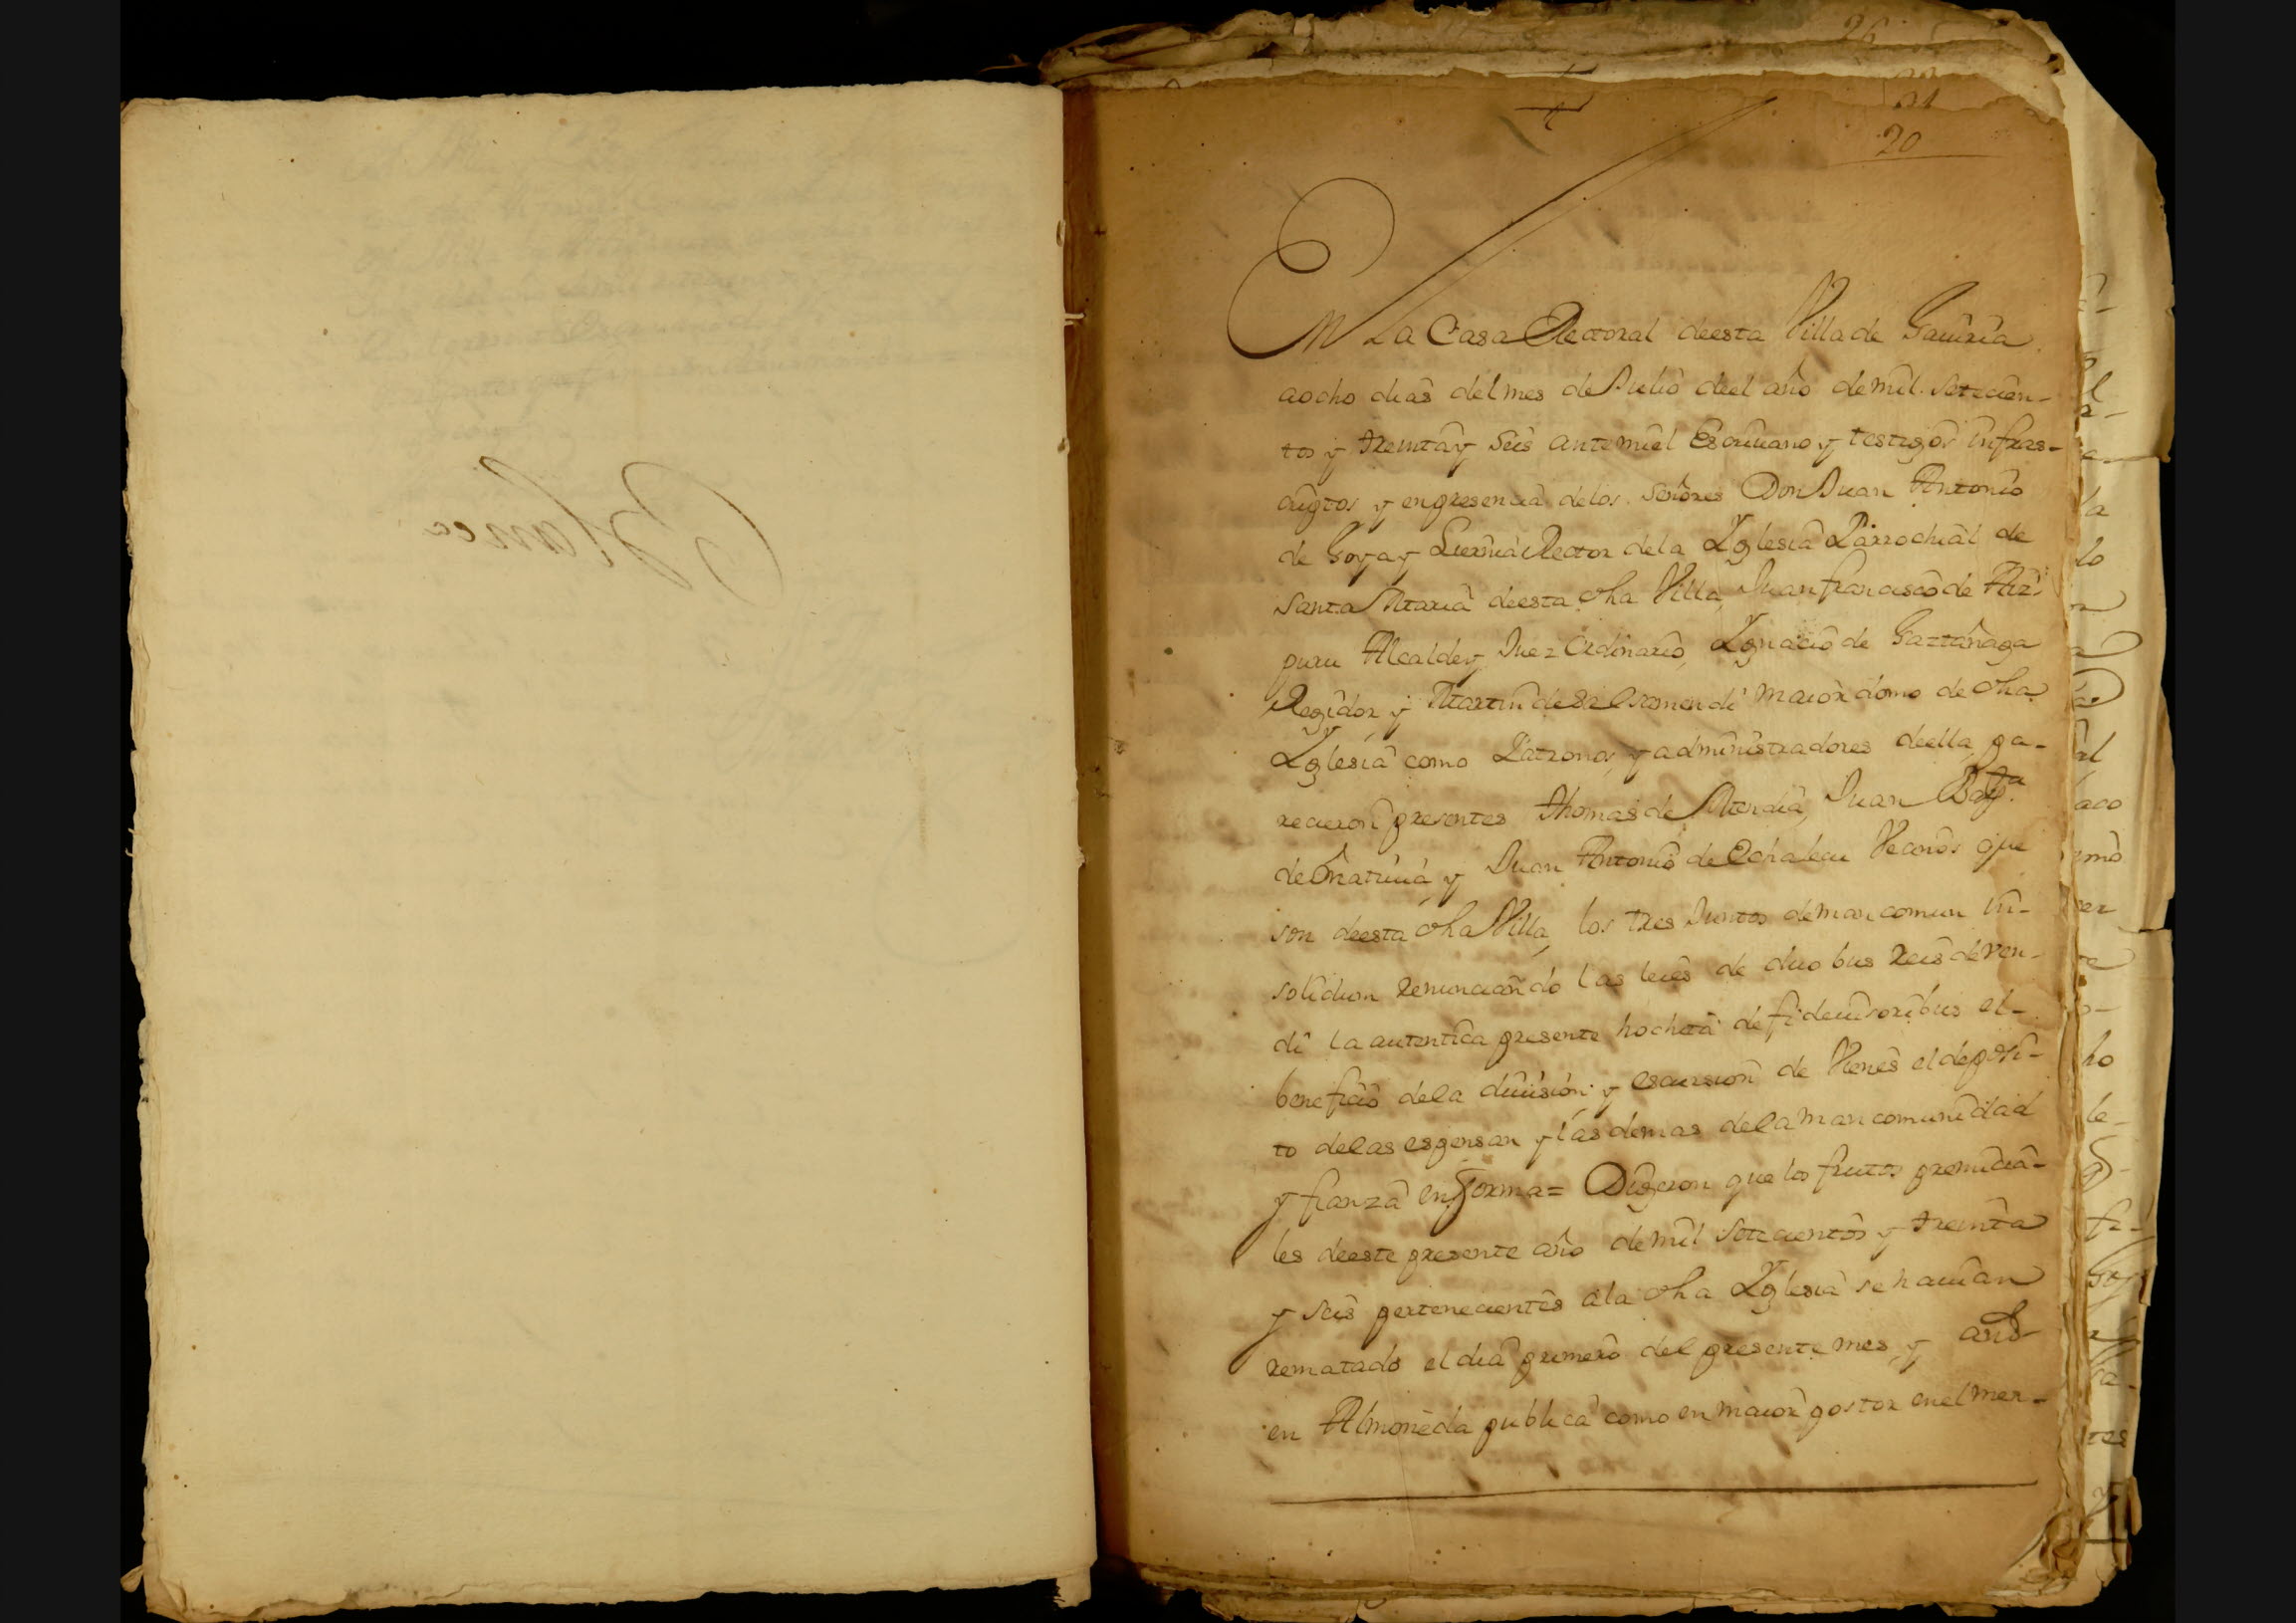 Blanca
26
31
20
En La Casa Rectoral deesta Villa de Gauiria
aocho dias del mes de Julio deel año de mil setecien-
tos y treinta y seis ante mi el Escriuano y testigos infras-
criptos y en presencia de los señores Don Juan Antonio
de Goya y Rector de la Yglesia Parrochial de
Santa Maria deesta dha Villa, Juan francisco de Aiz-
puru Alcalde y Juez Ordinario, Ygnacio de Gaztañaga
Regidor y Martin de maiordomo de dha
Yglesia como Patronos y administradores deella pa-
recieron presentes Thomas de Mendia, Juan Bapta
de y Juan Antonio de Vecinos que
son deesta dha Villa, los tres Juntos demancomun in-
solidun renunciando las leies de duobus reis deven-
di la autentica presente hochita de fideiusoribus el-
beneficio dela diuision y escursion de Vienes el deposi-
to delas espensan y las demas dela mancomunidad
y fianza en forma = Digeron que los frutos premicia-
les deeste presente año de mil setecientos y treinta
y seis pertenecientes a la dha Yglesia se hauian
rematado el dia primero del presente mes y año
en Almoneda publica como en maior postor en el mer-